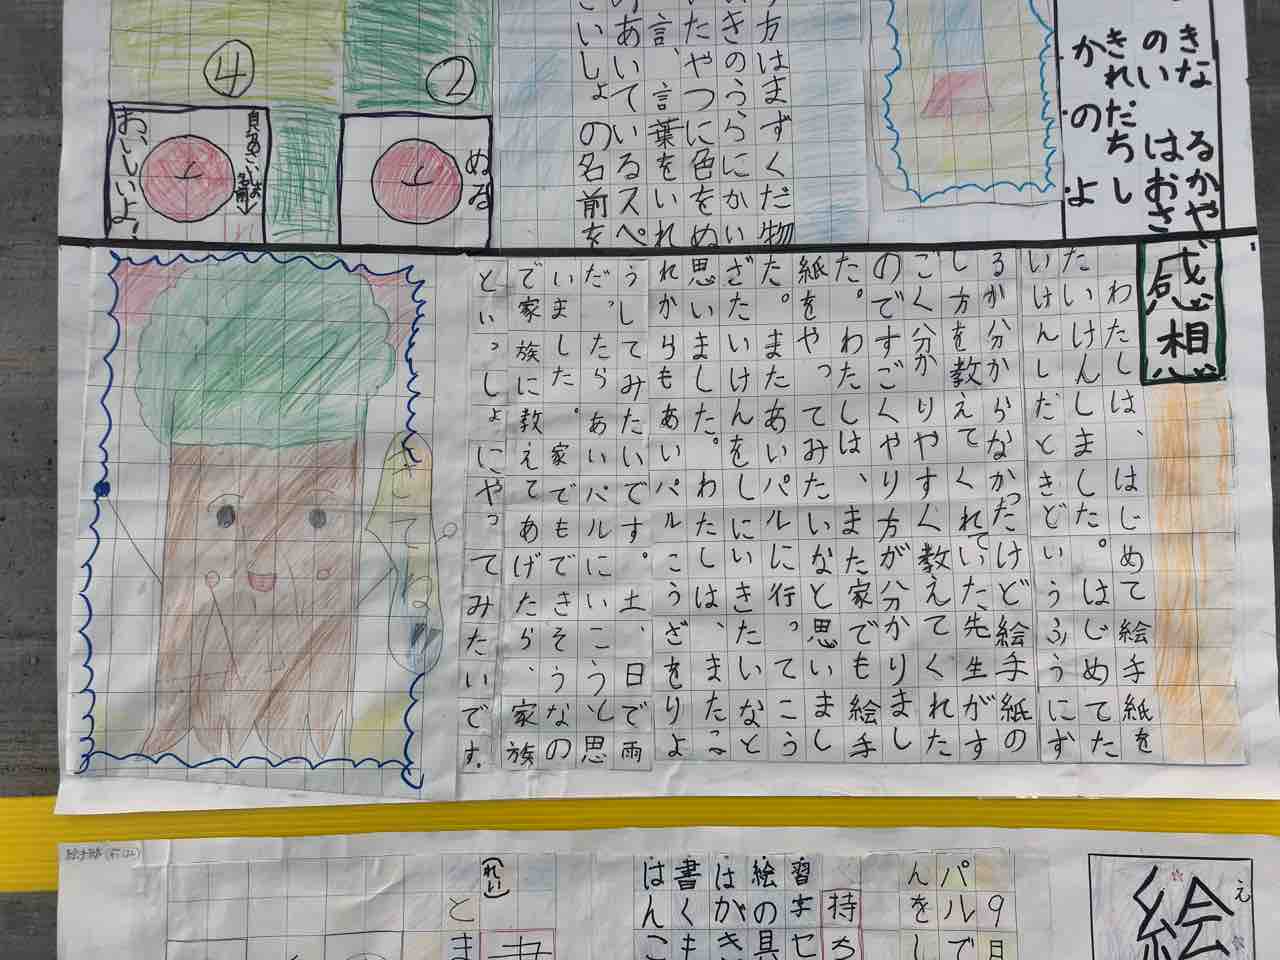 きな るかや
のい はおさ
きれだちし
か のよ
方はまずくだ物
きのうらにかい
たやつに色をぬ
言、言葉をいれ
のあいているスペ
いしょの名前を
②
ぬる
④
おいしいよ!
感想
わたしは、はじめて絵手紙を
たいけんしました。はじめてた
いけんしたときどいうふうにす
るか分からなかったけど絵手紙の
し方を教えてくれていた、先生がす
ごく分かりやすく教えてくれた
のですごくやり方が分かりまし
た。わたしは、また家でも絵手
紙をやってみたいなと思いまし
た。またあいパルに行ってこう
ざたいけんをしにいきたいなと
思いました。わたしは、またこ
れからもあいパルこうざをりよ
うしてみたいです。土、日で雨
だったらあいパルにいこうと思
いました。家でもできそうなの
で家族に教えてあげたら、家族
といっしょにやってみたいです。
さてね
絵
え
9日
パルで
んをし
持ち
習字セ
絵の具
はがき
書くも
はんこ
(れい)
とま